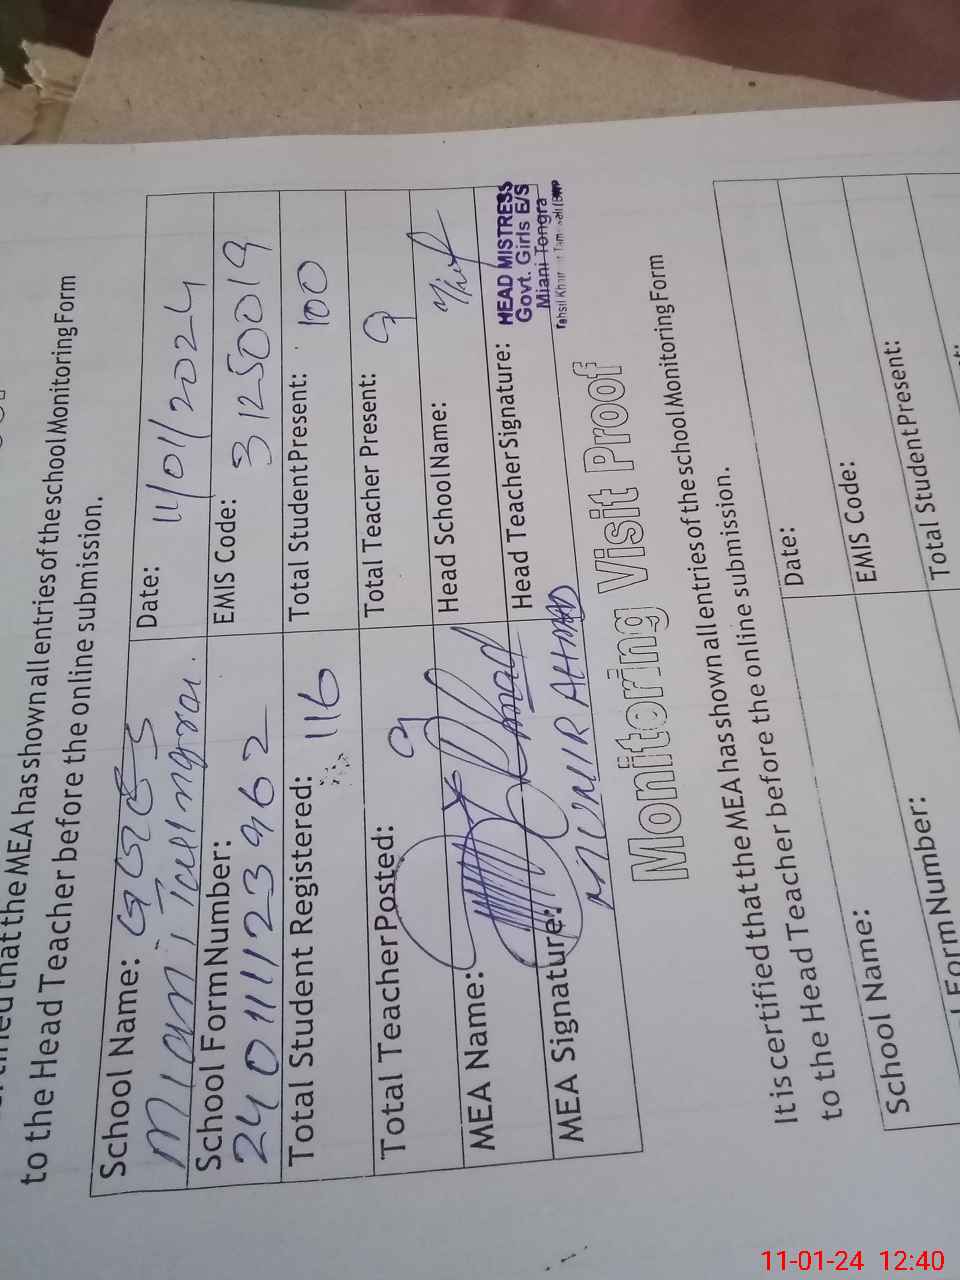 to the Head Teacher before the online submission.
that the MEA has shown all entries of the school Monitoring Form
School Name: GGES
Miani
Date: 11/01/2024
School Form Number:
EMIS Code: 31250019
Total Student Registered: 116
Total Student Present: 100
Total Teacher Posted: 9
Total Teacher Present: 9
MEA Name:
Head School Name:
MEA Signature:
MUNIR AHMAD
Head Teacher Signature:
HEAD MISTRESS
Govt. Girls E/S
Miani Tongra
Monitoring Visit Proof
It is certified that the MEA has shown all entries of the school Monitoring Form
to the Head Teacher before the online submission.
School Name:
Date:
EMIS Code:
Form Number:
Total Student Present:
11-01-24 12:40